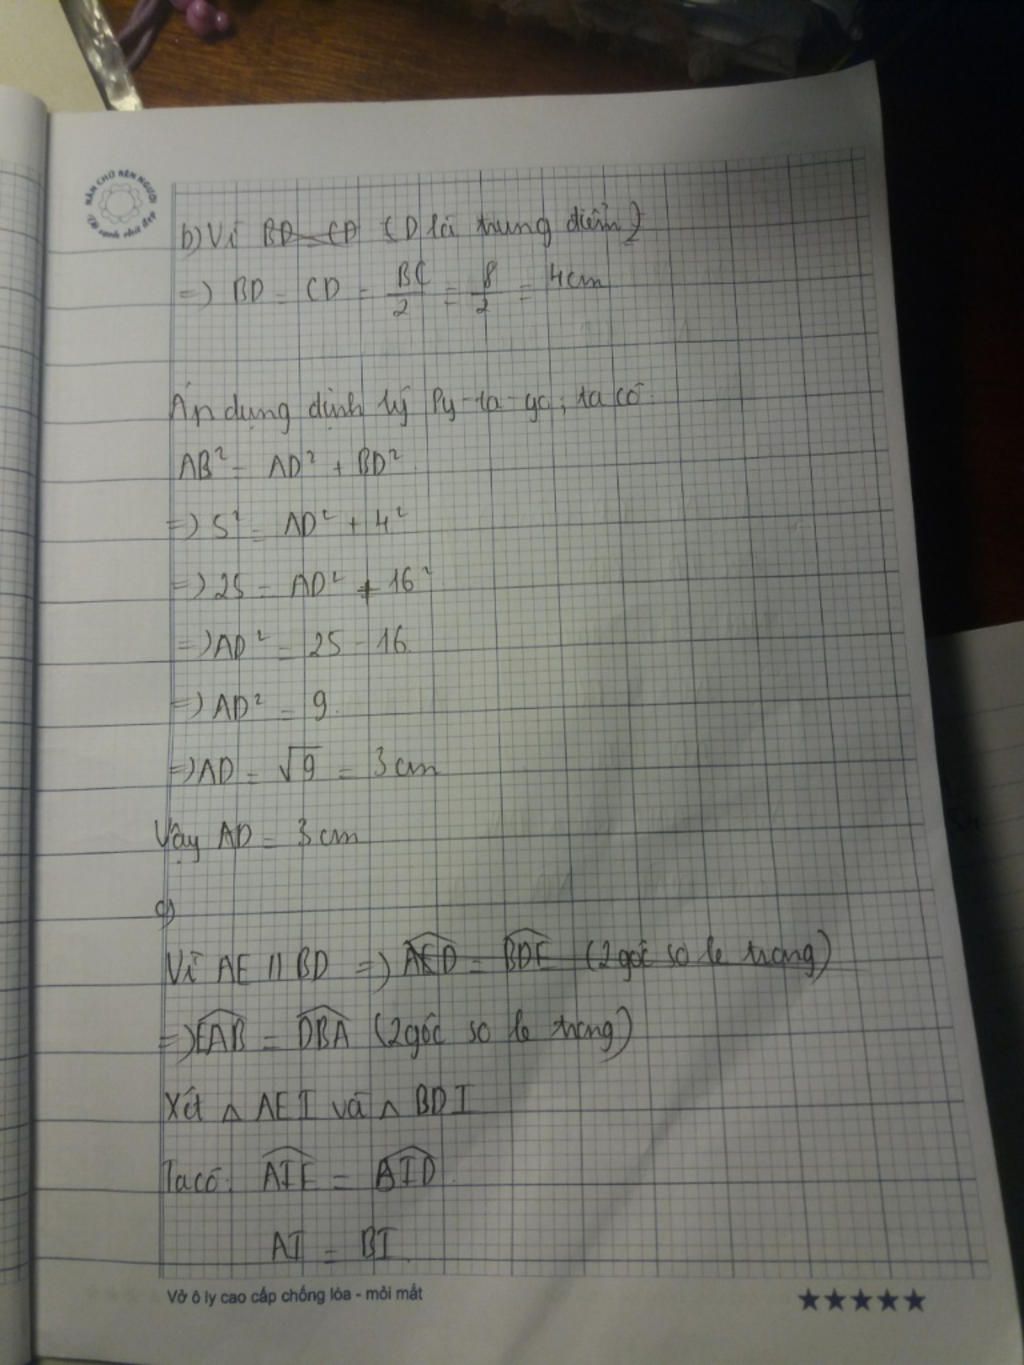 NÂN CHỮ NÊN NGƯỜI
b) Vì BD = CD (D là trung điểm)
=) BD = CD = BC/2 = 8/2 = 4cm
Áp dụng định lý Py-ta-go, ta có:
AB² = AD² + BD²
=) 5² = AD² + 4²
=) 25 = AD² + 16²
=) AD² = 25 - 16.
=) AD² = 9.
=) AD = √9 = 3cm
Vậy AD = 3cm
c)
Vì AE // BD =) AED = BDE (2 góc so le trong)
=) EAB = DBA (2 góc so le trong)
Xét Δ AEI và Δ BDI
Ta có: AIE = BID.
AI = BI.
Vở ô ly cao cấp chống lóa - mỏi mắt